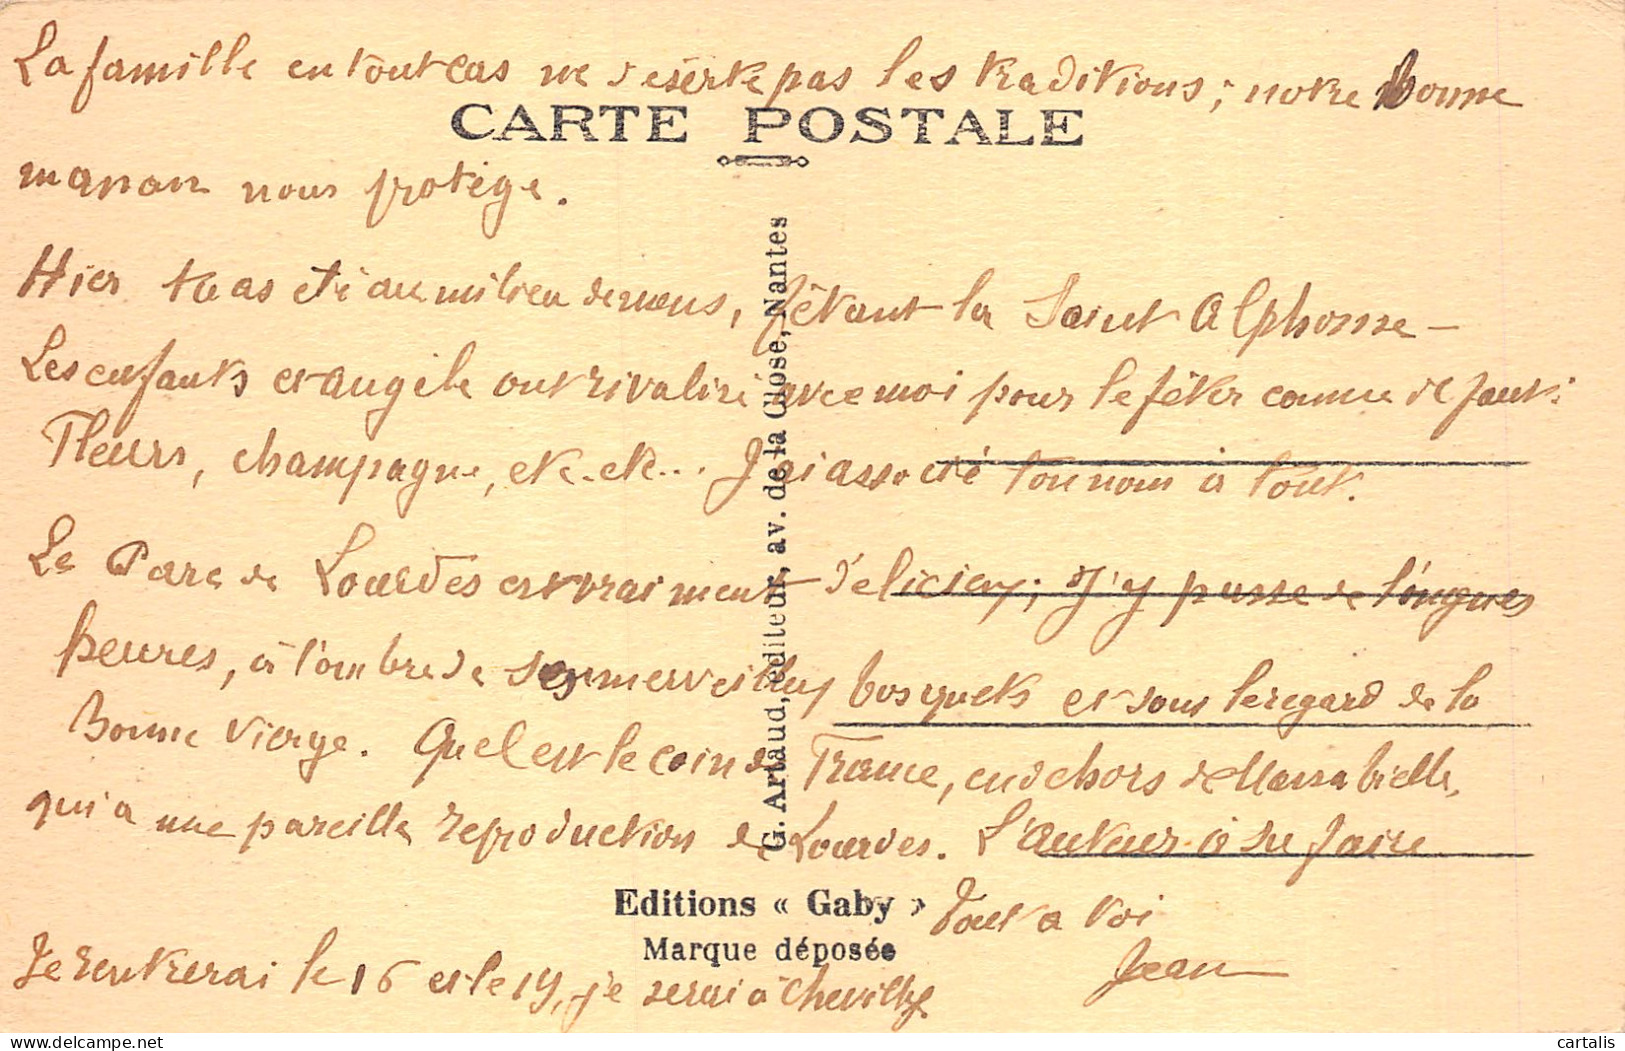 La famille en tout cas ne déserte pas les traditions ; notre Bonne
CARTE POSTALE
maman nous protège.
Hier tu as été au milieu de nous, fêtant la Saint Alphonse –
Les enfants et angèle ont rivalisé avec moi pour le fêter comme il faut :
Fleurs, champagne, etc. etc... J'ai associé ton nom à tout.
Le Parc de Lourdes est vraiment délicieux ; j'y passe de longues
heures, à l'ombre de ses merveilleux bosquets et sous le regard de la
Bonne Vierge. Quel est le coin de France, en dehors de Massabielle,
qui a une pareille reproduction de Lourdes. L'auteur a su faire
Tout à toi
Jean
Je rentrerai le 16 et le 19, je serai à Chevilly
G. Artaud, éditeur, av. de la Close, Nantes
Editions « Gaby »
Marque déposée
cartalis
delcampe.net